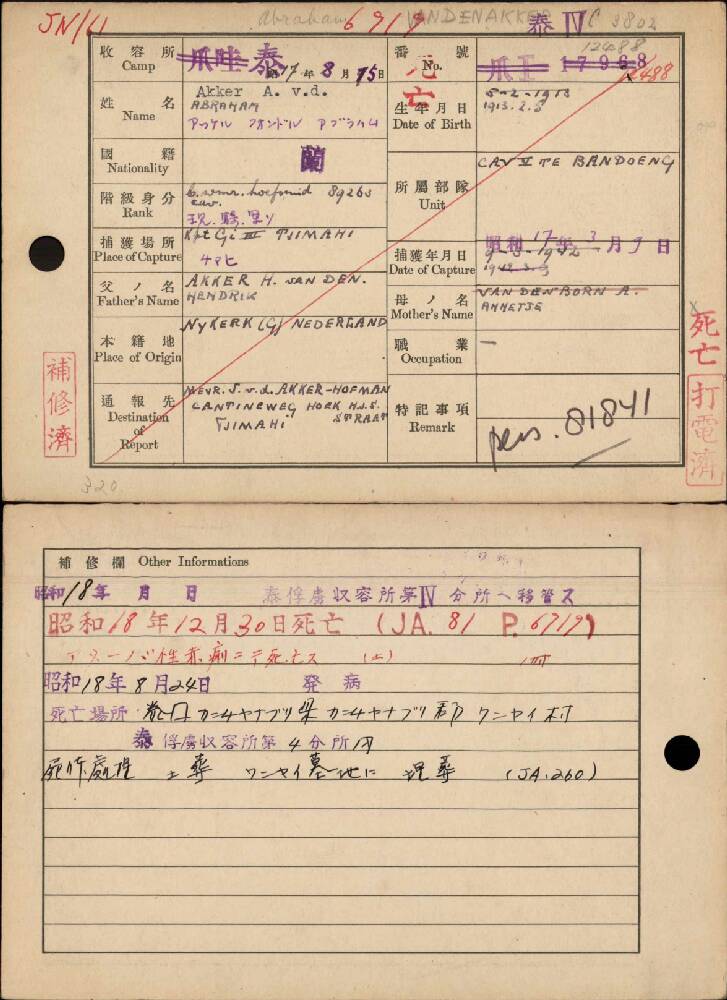 JN/61 Abraham 6919 VAN DEN AKKER 泰 IV C 3802
収容所 Camp 爪哇 泰 昭17年8月15日
番號 No. 爪工 17968 12488 2488
死亡
姓名 Name Akker A. v.d.
ABRAHAM
アッケル フオンドル アブラハム
生年月日 Date of Birth 5-2-1913
1913.2.5
國籍 Nationality 蘭
所屬部隊 Unit CAV II TE BANDOENG
階級身分 Rank b. wmr. hoefsmid 89263
cav.
捕獲場所 Place of Capture Kpt Gi III TJIMAHI
チマヒ
捕獲年月日 Date of Capture 昭和17年3月9日
9-3-1942
父ノ名 Father's Name AKKER H. VAN DEN.
HENDRIK
母ノ名 Mother's Name VAN DEN BORN A.
ANNETJE
本籍地 Place of Origin NYKERK (G) NEDERLAND
職業 Occupation —
通報先 Destination of Report MEVR. J. v.d. AKKER-HOFMAN
CANTINEWEG HOEK H.J.S.
STRAAT
TJIMAHI
特記事項 Remark pens. 81841
補修濟
死亡
打電濟
320
補修欄 Other Informations
昭和18年 月 日 泰俘虜収容所第IV分所ヘ移管ス
昭和18年12月30日死亡 (JA. 81 P. 6919)
アメーバ性赤痢ニテ死亡ス
昭和18年8月24日 発病
死亡場所 泰国カンチヤナブリ県カンチヤナブリ郡ワンヤイ村
泰俘虜収容所第4分所内
死体處理 土葬 ワンヤイ墓地に埋葬 (JA.260)